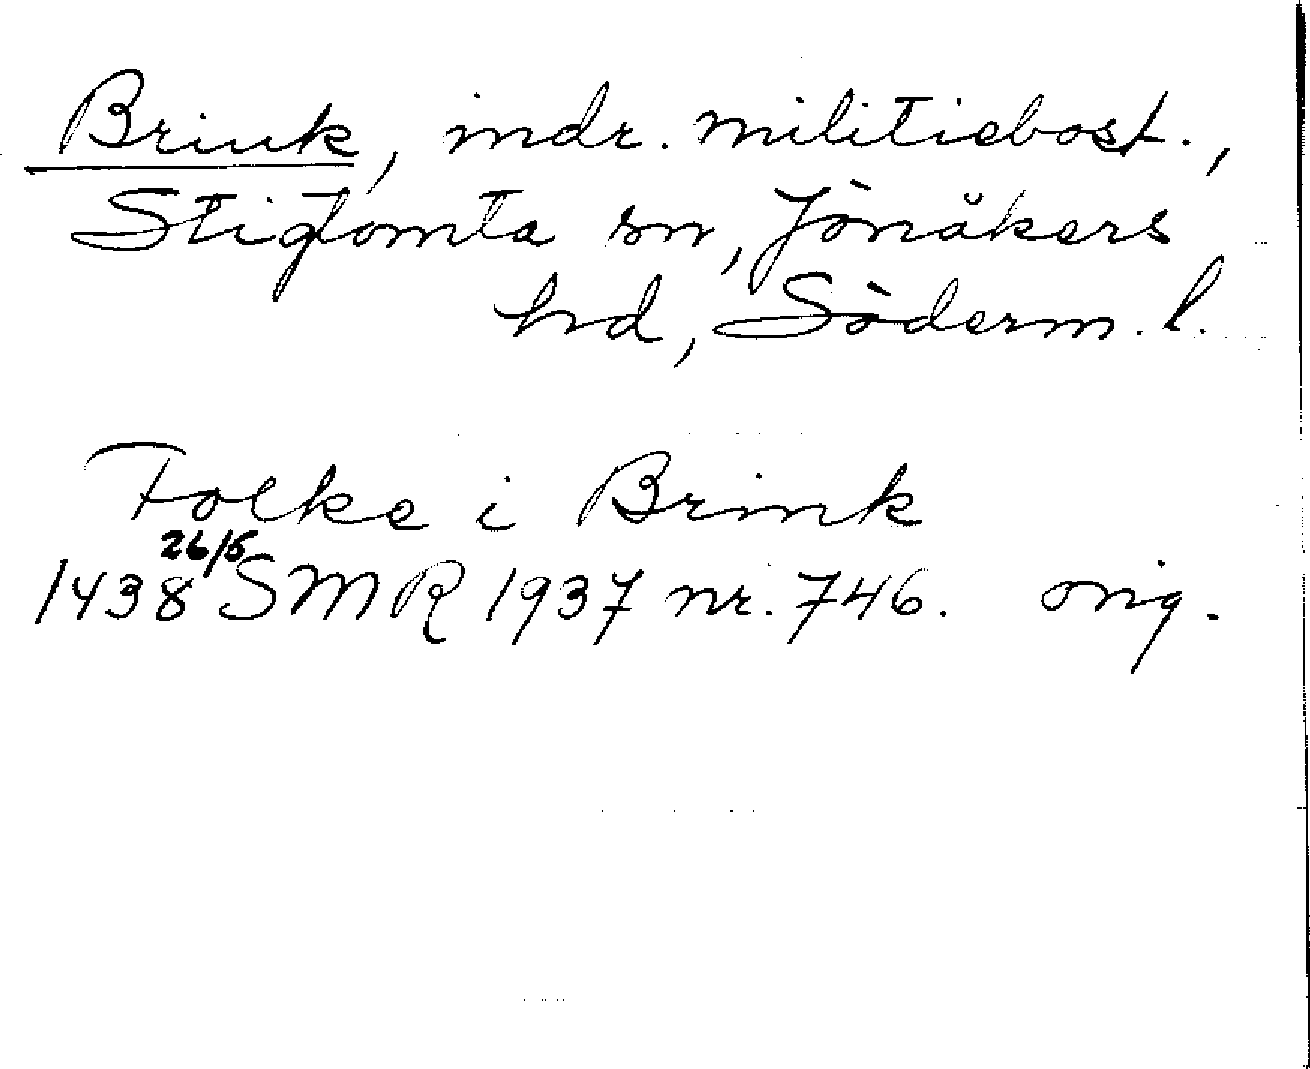 Brink, indr. militiebost.,
Stigtomta sn, Jönåkers
hd, Söderm. l.
Folke i Brink
1438 26/5 SMR 1937 nr. 746. orig.